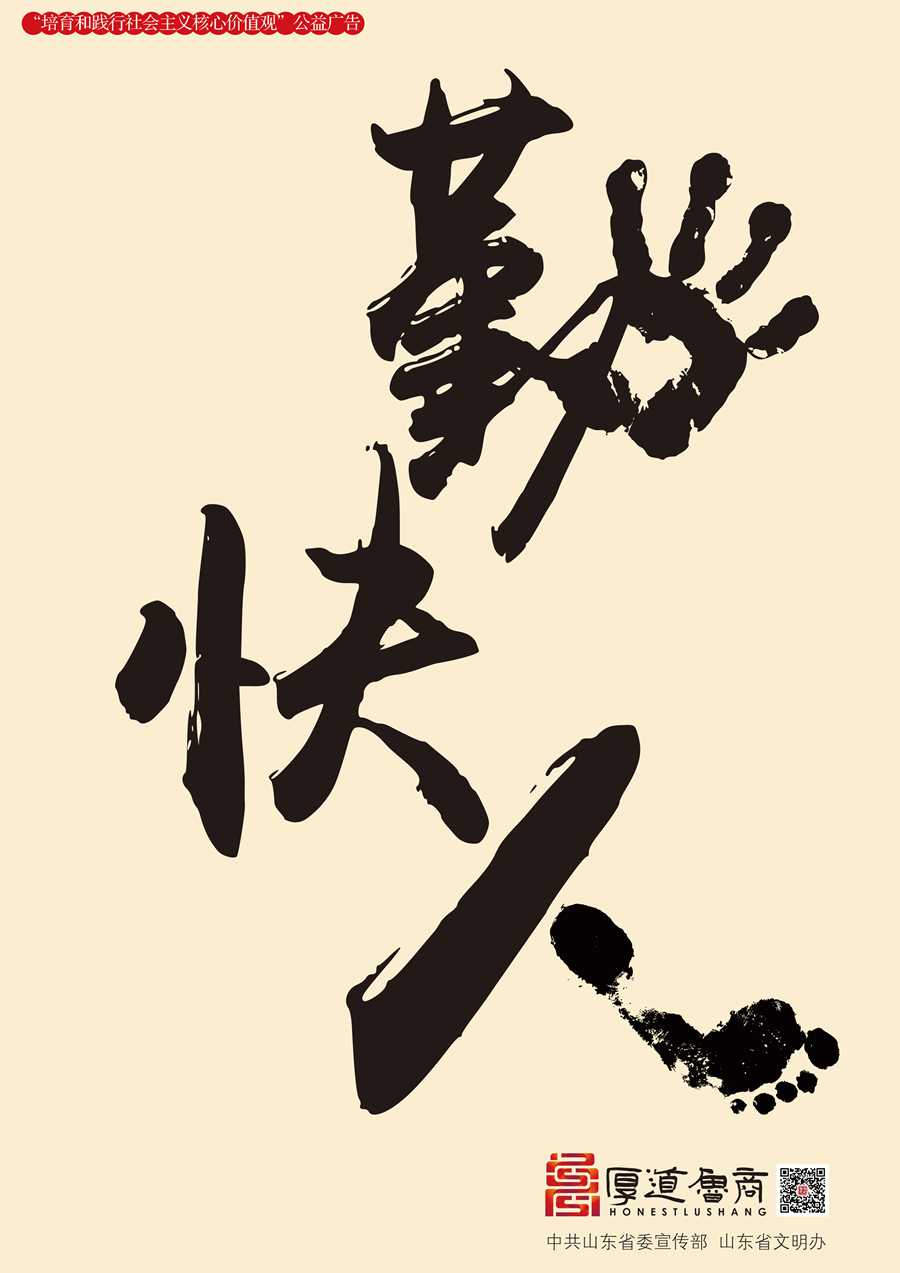 “培育和践行社会主义核心价值观”公益广告
勤
快
人
厚道鲁商
HONESTLUSHANG
中共山东省委宣传部 山东省文明办